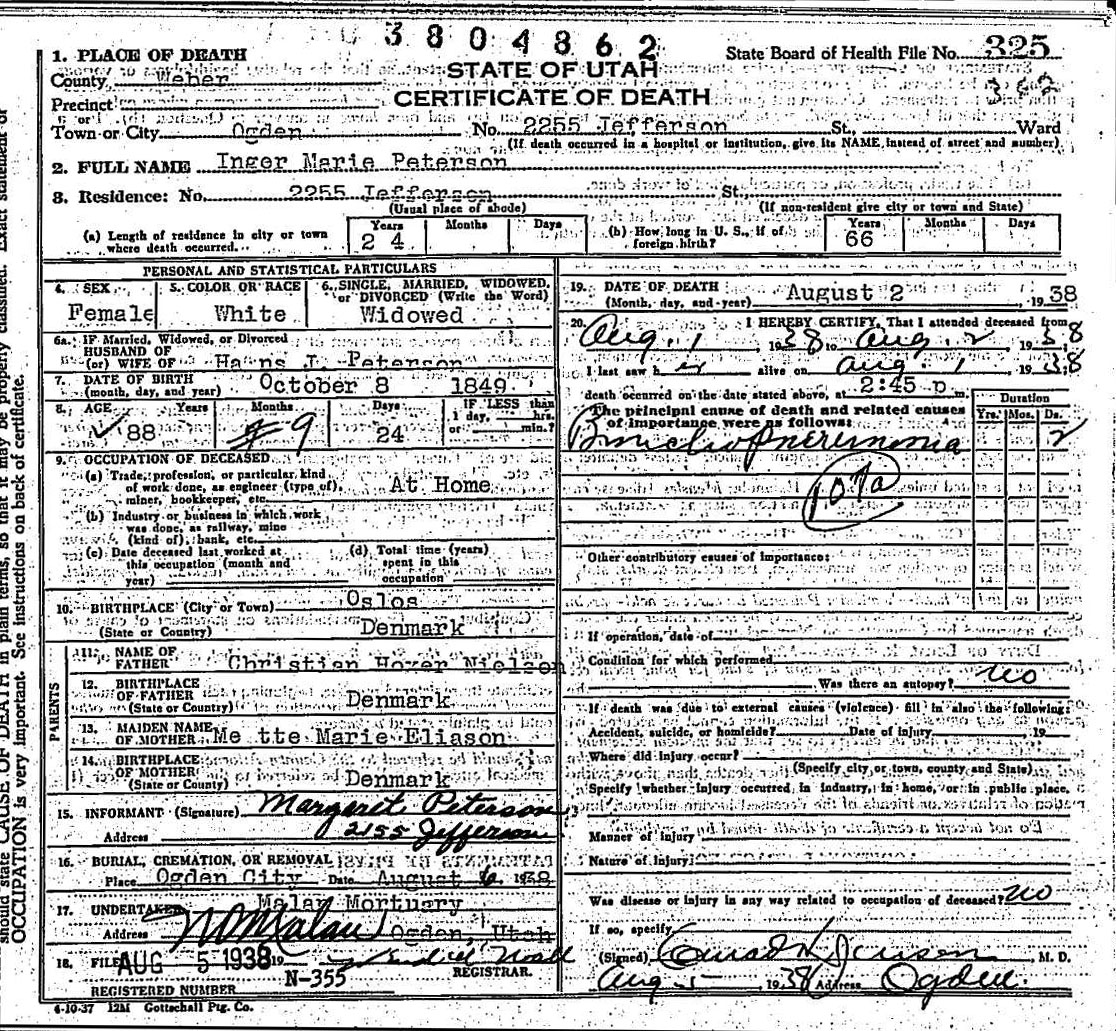 3804862
1. PLACE OF DEATH
State Board of Health File No. 325
County Weber
STATE OF UTAH
362
Precinct
CERTIFICATE OF DEATH
Town or City Ogden No. 2255 Jefferson St., Ward
(If death occurred in a hospital or institution, give its NAME instead of street and number)
2. FULL NAME Inger Marie Peterson
3. Residence: No. 2255 Jefferson St.
(Usual place of abode) (If non-resident give city or town and State)
(a) Length of residence in city or town where death occurred.. Years 24 Months Days
(b) How long in U. S., if of foreign birth? Years 66 Months Days
PERSONAL AND STATISTICAL PARTICULARS
4. SEX Female
5. COLOR OR RACE White
6. SINGLE, MARRIED, WIDOWED, or DIVORCED (Write the Word) Widowed
6a. IF Married, Widowed, or Divorced
HUSBAND OF
(or) WIFE OF Hans J. Peterson
7. DATE OF BIRTH (month, day, and year) October 8 1849
8. AGE Years 88 Months 9 Days 24 IF LESS than 1 day, hrs. or min.?
9. OCCUPATION OF DECEASED
(a) Trade, profession, or particular kind
of work done, as engineer (type of), At Home
miner, bookkeeper, etc.
(b) Industry or business in which work
was done, as railway, mine
(kind of), bank, etc.
(c) Date deceased last worked at this occupation (month and year)
(d) Total time (years) spent in this occupation
10. BIRTHPLACE (City or Town) Oslos
(State or Country) Denmark
PARENTS
11. NAME OF FATHER Christian Hover Nielsen
12. BIRTHPLACE OF FATHER (State or Country) Denmark
13. MAIDEN NAME OF MOTHER Me tte Marie Eliason
14. BIRTHPLACE OF MOTHER (State or Country) Denmark
15. INFORMANT (Signature) Margaret Peterson
Address 2155 Jefferson
16. BURIAL, CREMATION, OR REMOVAL
Place Ogden City Date August 6 1938
17. UNDERTAKER Malan Mortuary
Address Ogden, Utah
18. FILED AUG 5 1938 19
REGISTRAR.
N-355
REGISTERED NUMBER
4-10-37 12M Gottschall Ptg. Co.
19. DATE OF DEATH (Month, day, and year) August 2, 1938
20. I HEREBY CERTIFY, That I attended deceased from
Aug. 1 1938 to Aug. 2 1938
I last saw her alive on Aug. 1 1938
death occurred on the date stated above, at 2:45 p m.
The principal cause of death and related causes
of importance were as follows:
Duration
Yrs. Mos. Ds.
Bronchopneumonia 2
107a
Other contributory causes of importance:
If operation, date of
Condition for which performed
Was there an autopsy? no
If death was due to external causes (violence) fill in also the following:
Accident, suicide, or homicide? Date of injury 19
Where did injury occur?
(Specify city or town, county and State)
Specify whether injury occurred in industry, in home, or in public place,
Manner of injury
Nature of injury
Was disease or injury in any way related to occupation of deceased? no
If so, specify
(Signed) Conrad H. Jensen, M. D.
Aug 5 1938 Address Ogden.
should state CAUSE OF DEATH in plain terms, so that it may be properly classified. Exact statement of
OCCUPATION is very important. See instructions on back of certificate.